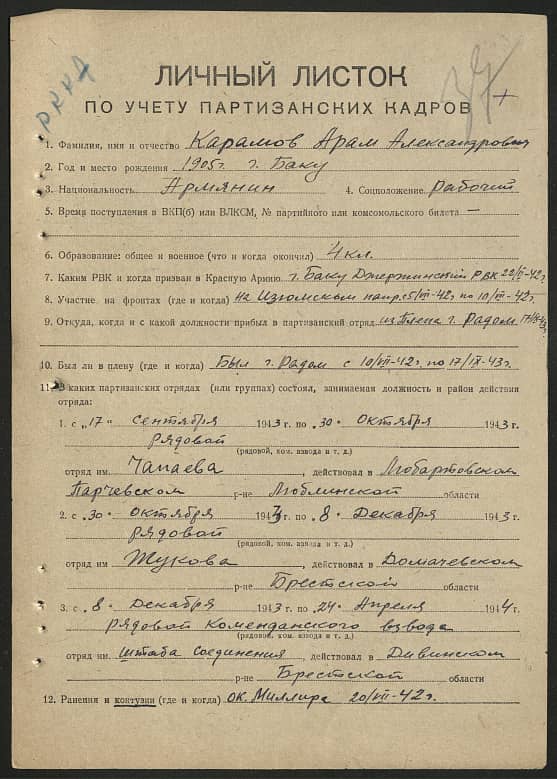 РККА
ЛИЧНЫЙ ЛИСТОК
ПО УЧЕТУ ПАРТИЗАНСКИХ КАДРОВ
1. Фамилия, имя и отчество Карамов Арам Александрович
2. Год и место рождения 1905 г. г. Баку
3. Национальность Армянин 4. Соцположение Рабочий
5. Время поступления в ВКП(б) или ВЛКСМ, № партийного или комсомольского билета —
6. Образование: общее и военное (что и когда окончил) 4 кл.
7. Каким РВК и когда призван в Красную Армию г. Баку Джержинский РВК 22/II-42 г.
8. Участие на фронтах (где и когда) на Изюмском напр. с 5/VII-42 г. по 10/VII-42 г.
9. Откуда, когда и с какой должности прибыл в партизанский отряд из плена г. Радом 17/IX-43
10. Был ли в плену (где и когда) Был г. Радом с 10/VII-42 г. по 17/IX-43 г.
11. В каких партизанских отрядах (или группах) состоял, занимаемая должность и район действия
отряда:
1. с „17" сентября 1943 г. по „30" Октября 1943 г.
рядовой
(рядовой, ком. взвода и т. д.)
отряд им. Чапаева, действовал в Любартовском
Парчевском р-не Люблинской области
2. с „30" октября 1943 г. по „8" Декабря 1943 г.
рядовой
(рядовой, ком. взвода и т. д.)
отряд им Жукова, действовал в Домачевском
р-не Брестской области
3. с „8" Декабря 1943 г. по „24" Апреля 1944 г.
рядовой Коменданского взвода
(рядовой, ком. взвода и т. д.)
отряд им. Штаба Соединения, действовал в Дивинском
р-не Брестской области
12. Ранения и контузии (где и когда) ок. Миллира 20/VII-42 г.